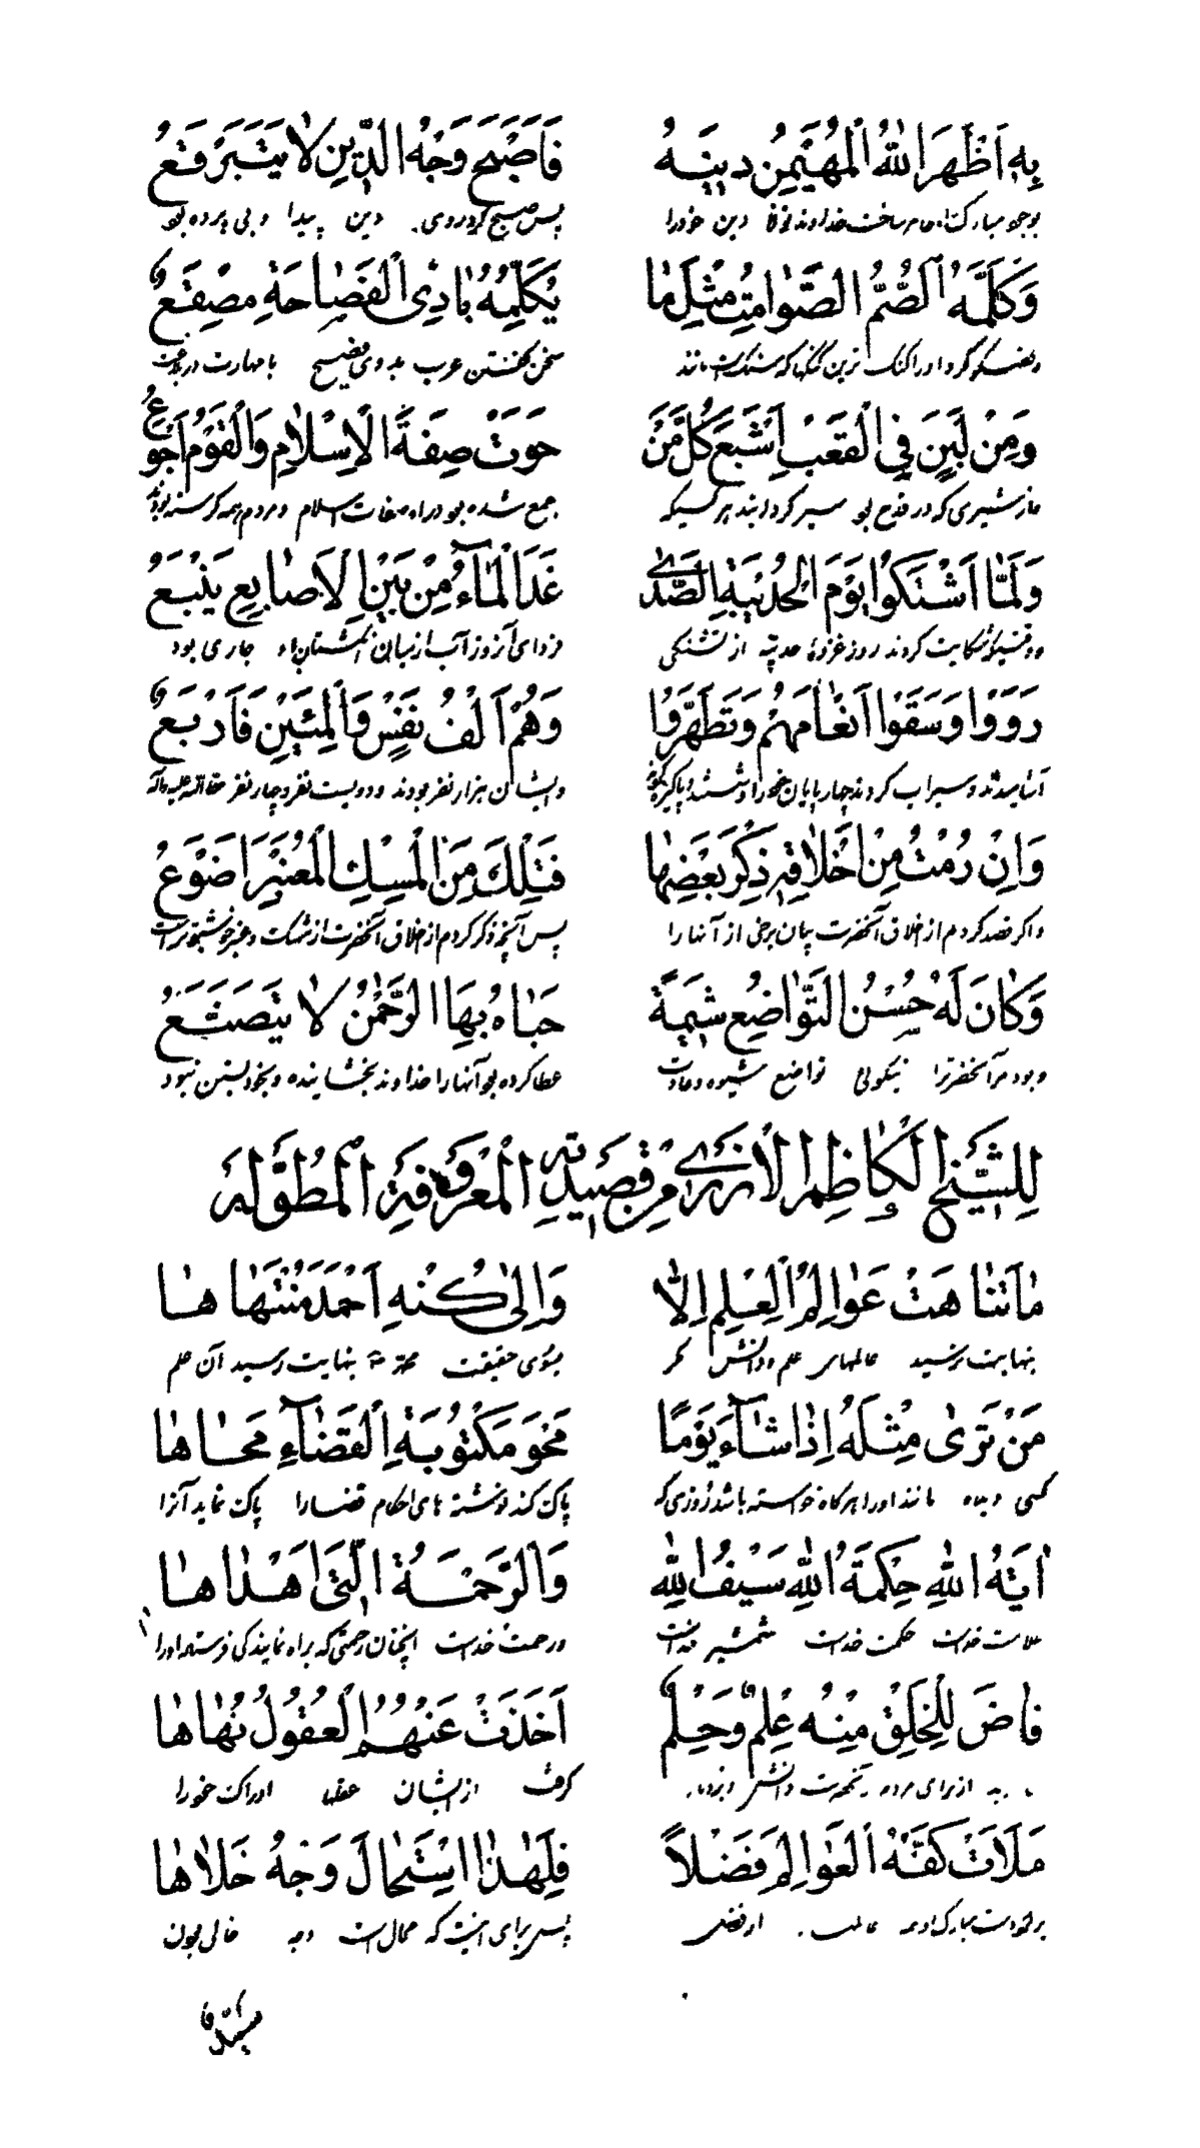 بِهِ اَظْهَرَ اللّٰهُ الْمُهَيْمِنُ دِينَهُ فَاَصْبَحَ وَجْهُ الدِّينِ لَا يَتَبَرْقَعُ
دین خودرا پس دین پیدا و بی پرده بود
وَكَلَّمَهُ الصُّمُّ الصَّوَامِتُ مِثْلَ مَا يُكَلِّمُهُ بَادِى الْفَصَاحَةِ مِصْقَعٌ
سخن گفتن عرب بدوی فصیح با مهارت
وَمِنْ لَبَنٍ فِى الْقَعْبِ اَشْبَعَ كُلَّ مَنْ حَوَتْ صِفَةُ الْاِسْلَامِ وَالْقَوْمُ اَجْوُعُ
شیری که در قدح بود سیر گردانید هر کسیکه جمع شده بود در او صفات اسلام و مردم همه گرسنه بودند
وَلَمَّا اشْتَكَوْا يَوْمَ الْحُدَيْبَةِ الصَّدٰى غَدَا الْمَآءُ مِنْ بَيْنِ الْاَصَابِعِ يَنْبَعُ
شکایت کردند روز غزوهٔ از تشنکی فردای آنروز آب از میان انگشتان او جاری بود
رَوَوْا وَسَقَوْا اَنْعَامَهُمْ وَتَطَهَّرُوا وَهُمْ اَلْفُ نَفْسٍ وَالْمِئَيْنِ فَاَرْبَعٌ
و سیراب کردند چارپایان خودرا و ایشان هزار نفر بودند و دویست نفر و چار نفر
وَاِنْ رُمْتُ مِنْ اَخْلَاقِهِ ذِكْرَ بَعْضِهَا فَتِلْكَ مِنَ الْمِسْكِ الْمُعَنْبَرِ اَضْوَعُ
و اگر قصد کردم از اخلاق آنحضرت بیان برخی از آنها را پس آنچه ذکر کردم از اخلاق آنحضرت از مشک و عنبر خوشبوتر است
وَكَانَ لَهُ حُسْنُ التَّوَاضُعِ شِيمَةً حَبَاهُ بِهَا الرَّحْمٰنُ لَا يَتَصَنَّعُ
و بود مر آنحضرترا نیکوئی تواضع شیوه و عادت عطا کرده بود آنها را خداوند بخشاینده و بخود بستن نبود
لِلشَّيْخِ الْكَاظِمِ الْاُزْرِىِّ مِنْ قَصِيدَتِهِ الْمَعْرُوفَةِ الْمُطَوَّلَةِ
مَا تَنَاهَتْ عَوَالِمُ الْعِلْمِ اِلَّا وَاِلٰى كُنْهِ اَحْمَدَ مُنْتَهَاهَا
بنهایت نرسید عالمهای علم و دانش مگر بسوی حقیقت بنهایت رسید آن علم
مَنْ تَرٰى مِثْلَهُ اِذَا شَآءَ يَوْمًا مَحْوَ مَكْتُوبَةِ الْقَضَآءِ مَحَاهَا
مانند اورا هرگاه خواسته باشد روزی که پاک کند نوشته های احکام قضا را پاک نماید آنرا
اٰيَةُ اللّٰهِ حِكْمَةُ اللّٰهِ سَيْفُ اللّٰهِ وَالرَّحْمَةُ الَّتِى اَهْدَاهَا
حکمت خداست شمشیر خداست و رحمت خداست آنچنان رحمتی که براه نمایندگی فرستاد اورا
فَاضَ لِلْخَلْقِ مِنْهُ عِلْمٌ وَحِلْمٌ اَخَذَتْ عَنْهُمُ الْعُقُولُ نُهَاهَا
از برای دانش گرفت از ایشان عقلها ادراک خودرا
مَلَاَتْ كَفُّهُ الْعَوَالِمَ فَضْلًا فَلِهٰذَا اسْتَحَالَ وَجْهُ خَلَاهَا
دست مبارک او از فضل پس برای اینست که محال است وجه خالی بودن